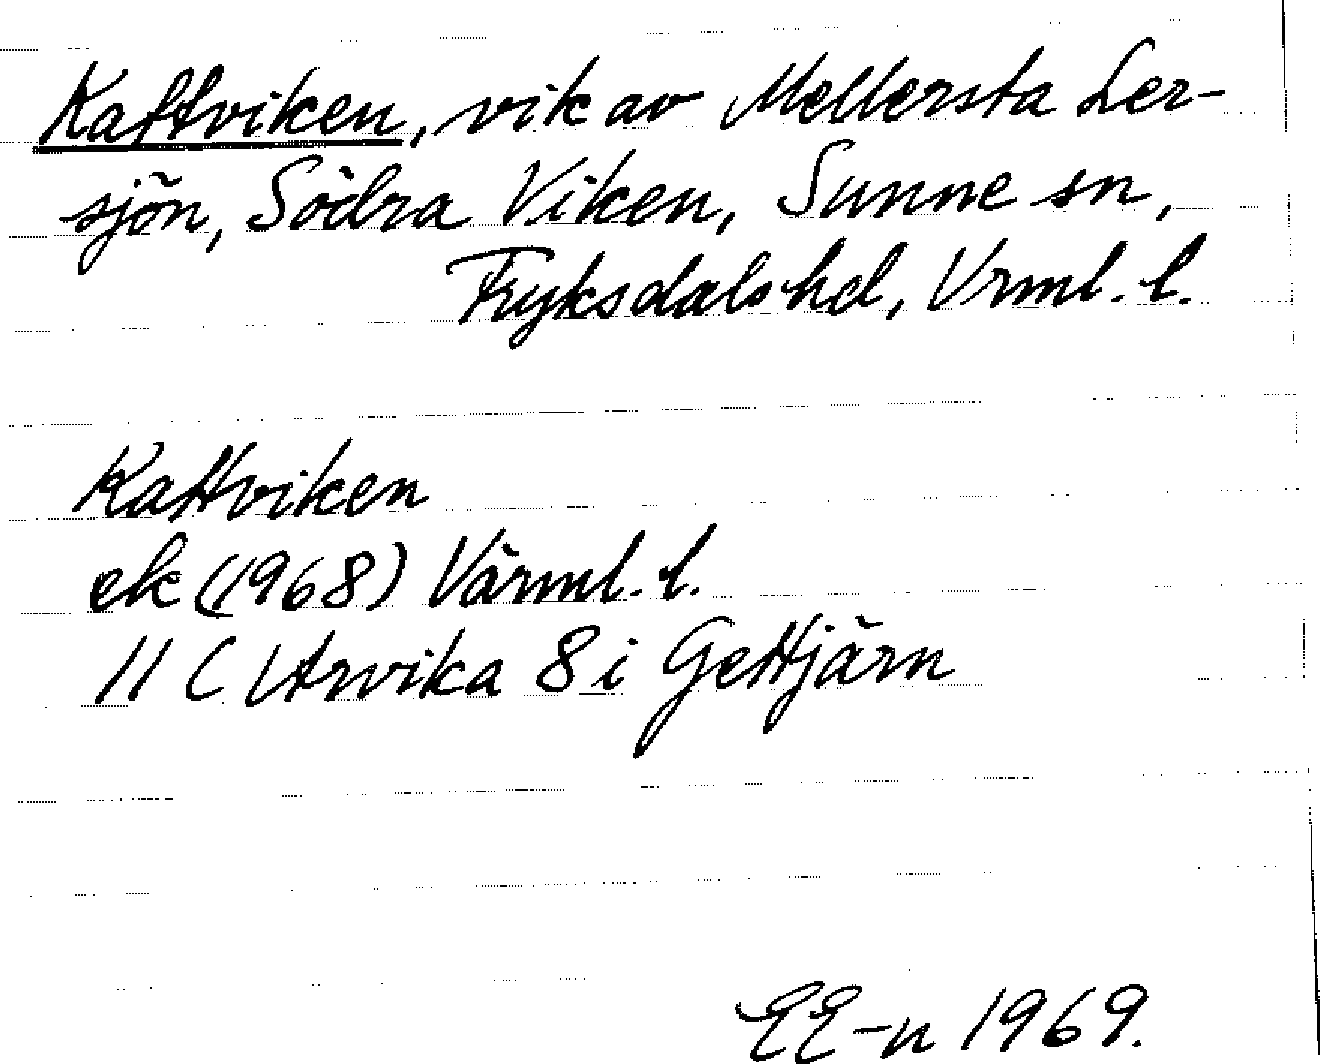 Kattviken, vik av Mellersta Ler-
sjön, Södra Viken, Sunne sn,
Fryksdals hd, Vrml. l.
Kattviken
ek (1968) Värml. l.
11 C Arvika 8 i Gettjärn
EE-n 1969.